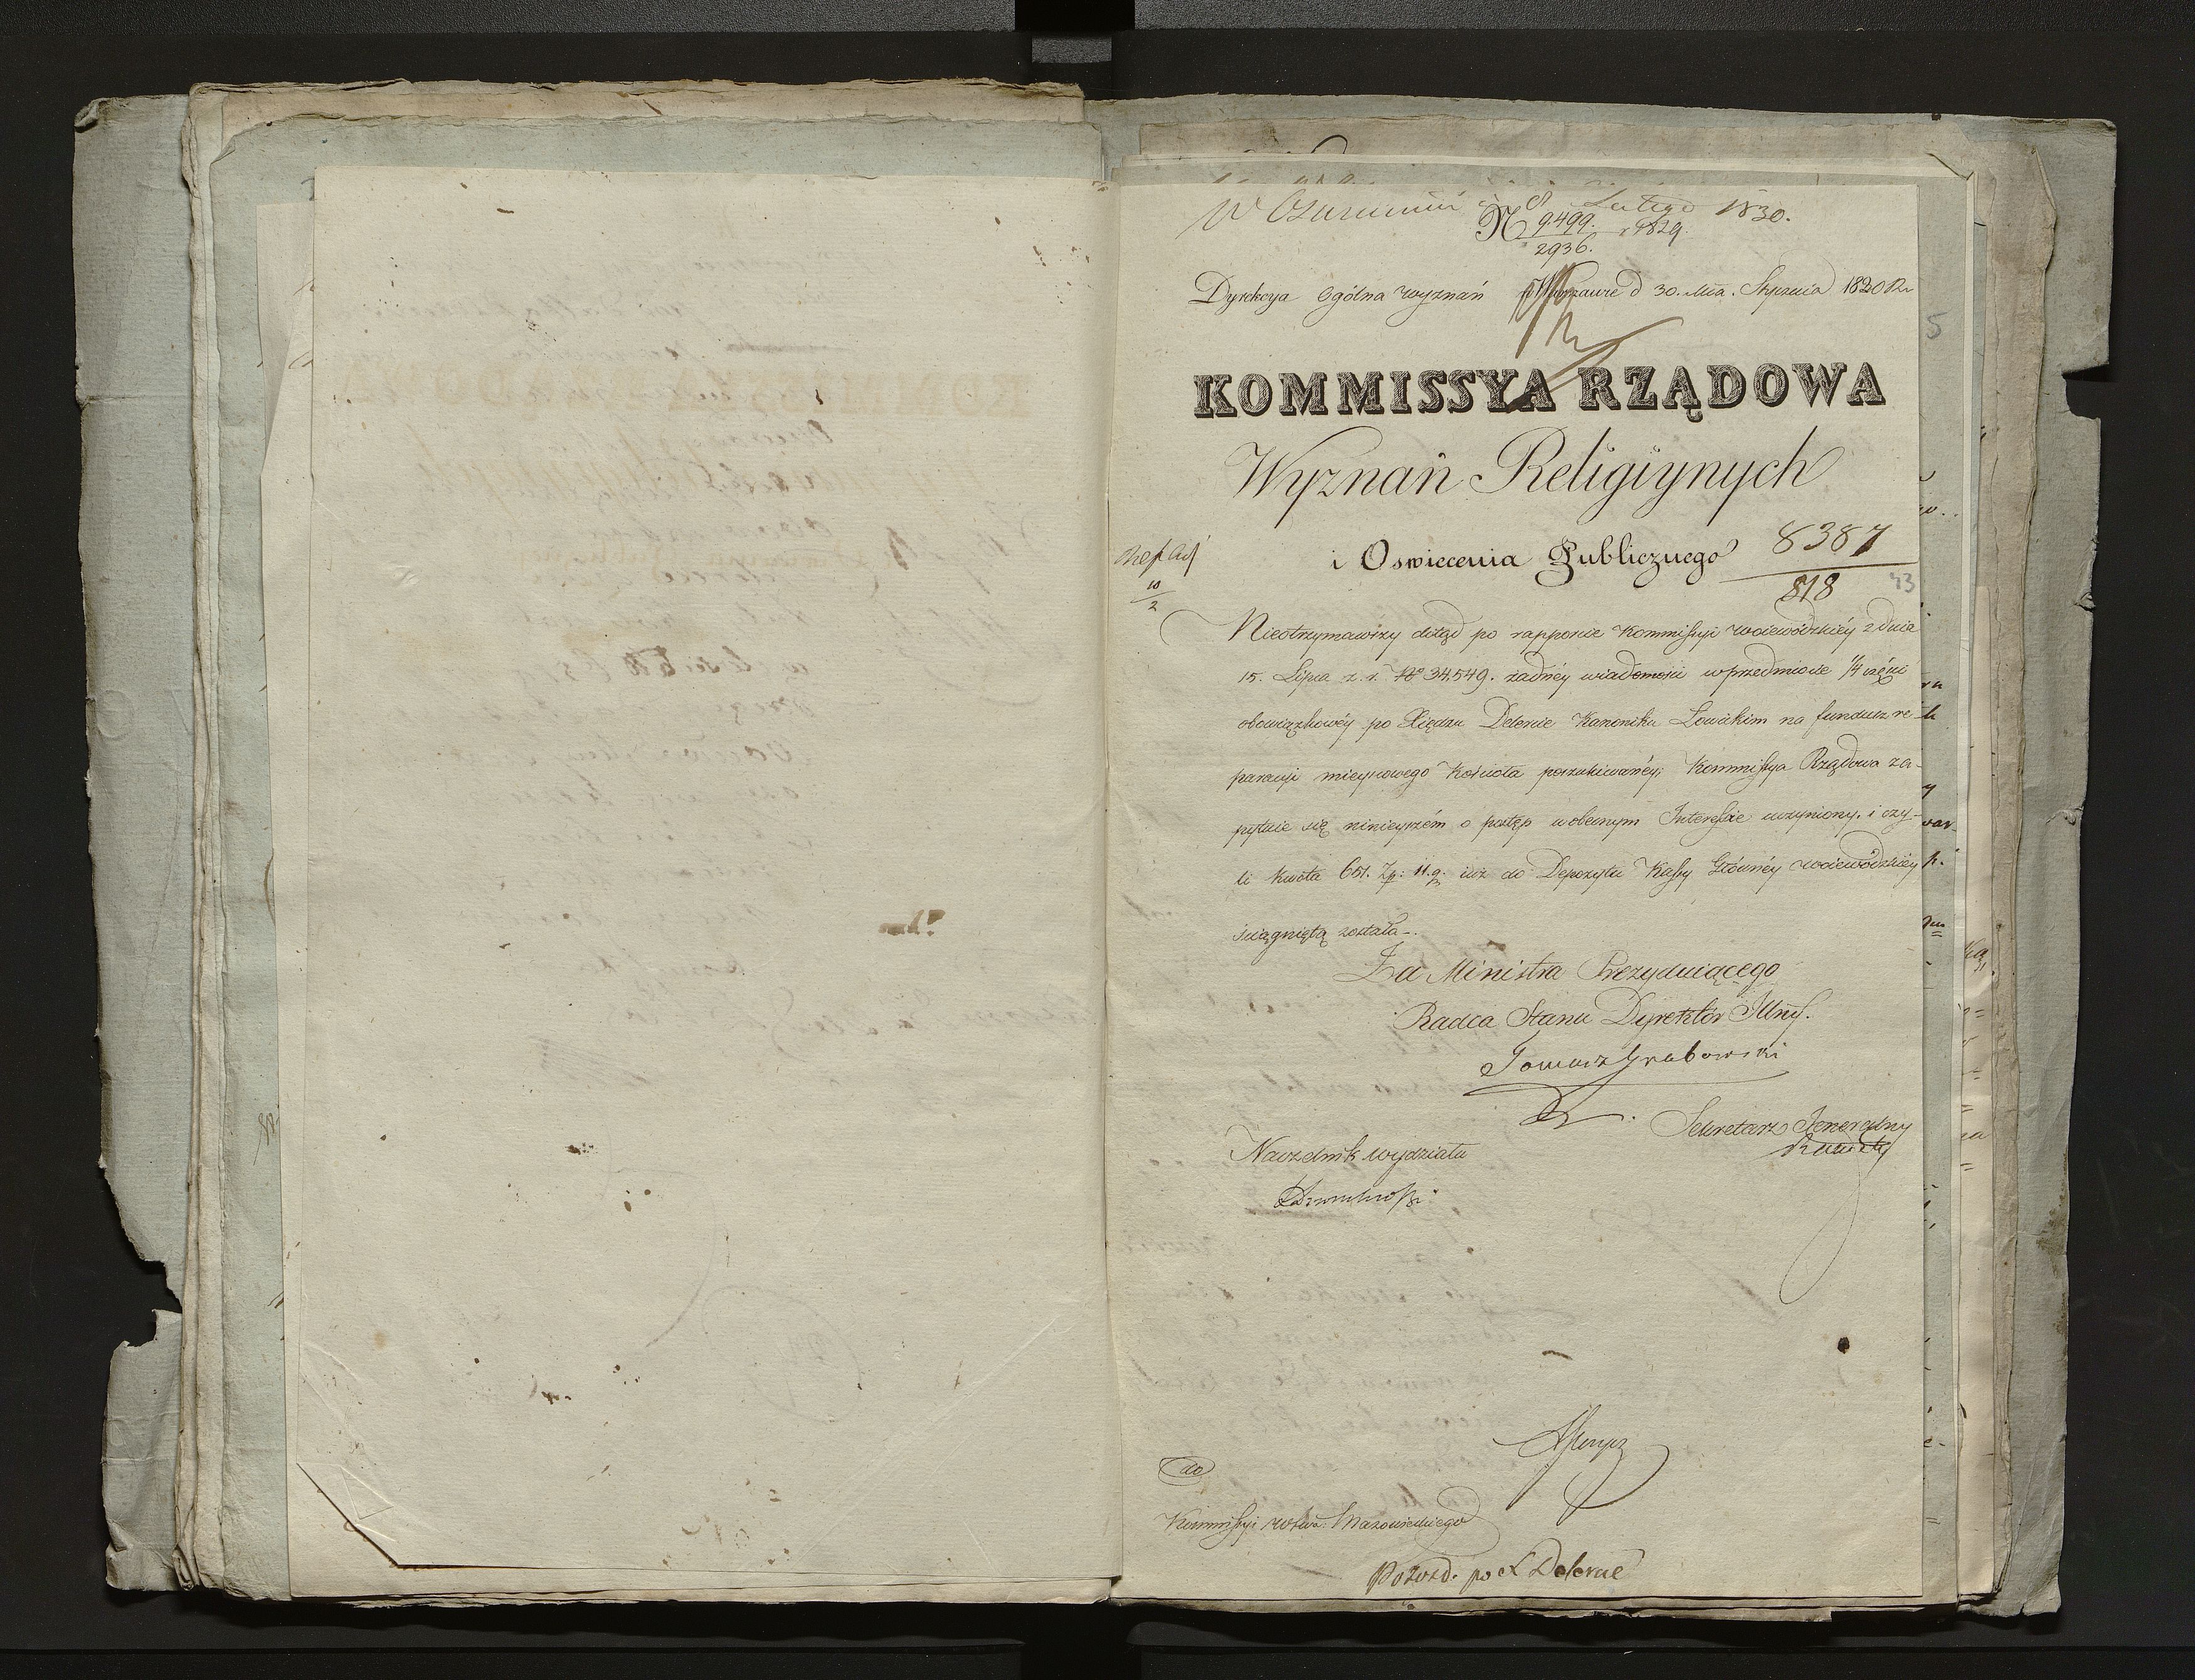 Lutego 1830.
N 9.499. / 2936. r 1829.
Dyrekcya Ogólna wyznań w Warszawie d 30. Mca. Stycznia 1830 R.
KOMMISSYA RZĄDOWA
Wyznań Religiynych
i Oswiecenia Publicznego
8387
818
43
10
2
Nieotrzymawszy dotąd po rapporcie Kommissyi woiewódzkiéy z dnia
15. Lipca z. r. No 34,549. żadnéy wiadomości w przedmiocie 1/4 części
obowiązkowéy po Xiędzu Delercie Kanoniku Łowickim na fundusz re-
paracyi mieyscowego Kościoła poszukiwanéy; Kommissya Rządowa za-
pytuie się ninieyszém o postęp w obecnym Interessie uczyniony. i czy-
li kwota 651. Zp: 11. g. iuż do Depozytu Kassy Głównéy woiewódzkiéy
ściągniętą została.
Za Ministra Prezyduiącego
Radca Stanu Dyrektór Jlny.
Tomasz Grabowski
Sekretarz Jeneralny
Naczelnik wydziału
do
Kommissyi wotwa: Mazowieckiego
po X Delercie
5